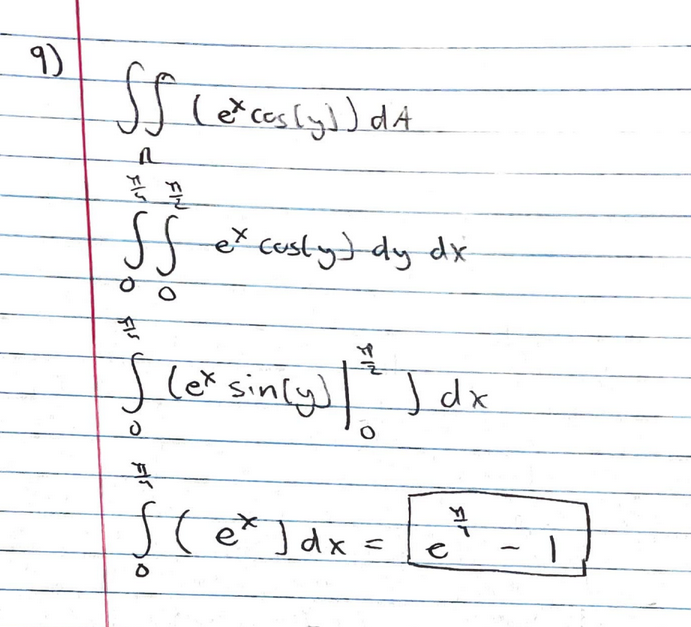 9)
∬_R (e^x cos(y)) dA
∫_0^{π/4} ∫_0^{π/2} e^x cos(y) dy dx
∫_0^{π/4} (e^x sin(y) |_0^{π/2} ) dx
∫_0^{π/4} ( e^x ) dx = e^{π/4} - 1